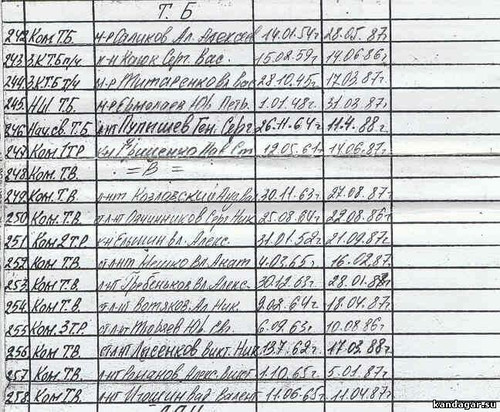 Т. Б
242 Ком. ТБ. м-р Саликов Ал. Алексее 14.01.54г 28.05.87.
243 ЗКТБ п/ч к-н Каюк Серг. Вас. 15.02.59г 14.06.86г.
244 ЗКТБ т/ч м-р Титаренко Вл. Вас 28.10.45г 17.03.87г.
245. НШ ТБ м-р Ермолаев Юр. Петр. 1.01.48г. 31.03.87г
246 Нач. св. Т.Б Пупышев Ген. Серг. 26.11.64г 11.4.88г.
247 Ком. 1ТР 12.05.61г 14.06.87г.
248 Ком. ТВ. = В =
249 Ком. Т.В. л-нт Козловский 30.11.63г. 27.08.87г.
250 Ком. Т.В. Овчинников Серг. Ник. 25.08.64г 22.08.86г
251 Ком 2 Т.Р. к-н Вл. Алекс. 31.01.52г. 21.09.87г.
252. Ком. Т.В. ст л-нт Мешко Вл. Анат 4.03.65г. 16.02.87г
253. Ком. Т.В. л-нт Гребеньков Вл. Алекс. 30.12.63г 28.01.88г
254. Ком. Т.В. Вотяков Ал. Ник. 9.08.64г 18.04.87г.
255 Ком. 3 ТР Юр. 6.09.63г. 10.08.86г.
256 Ком. ТВ. ст л-нт Лысенков Викт. Ник. 13.7.62г. 17.03.88г
257 Ком. ТВ л-нт Романов Алекс. Викт. 1.10.65г 5.01.87г.
258 Ком. ТВ. л-нт Игошин Вад. Валент 11.06.65г 11.04.87г.
kandagar.su